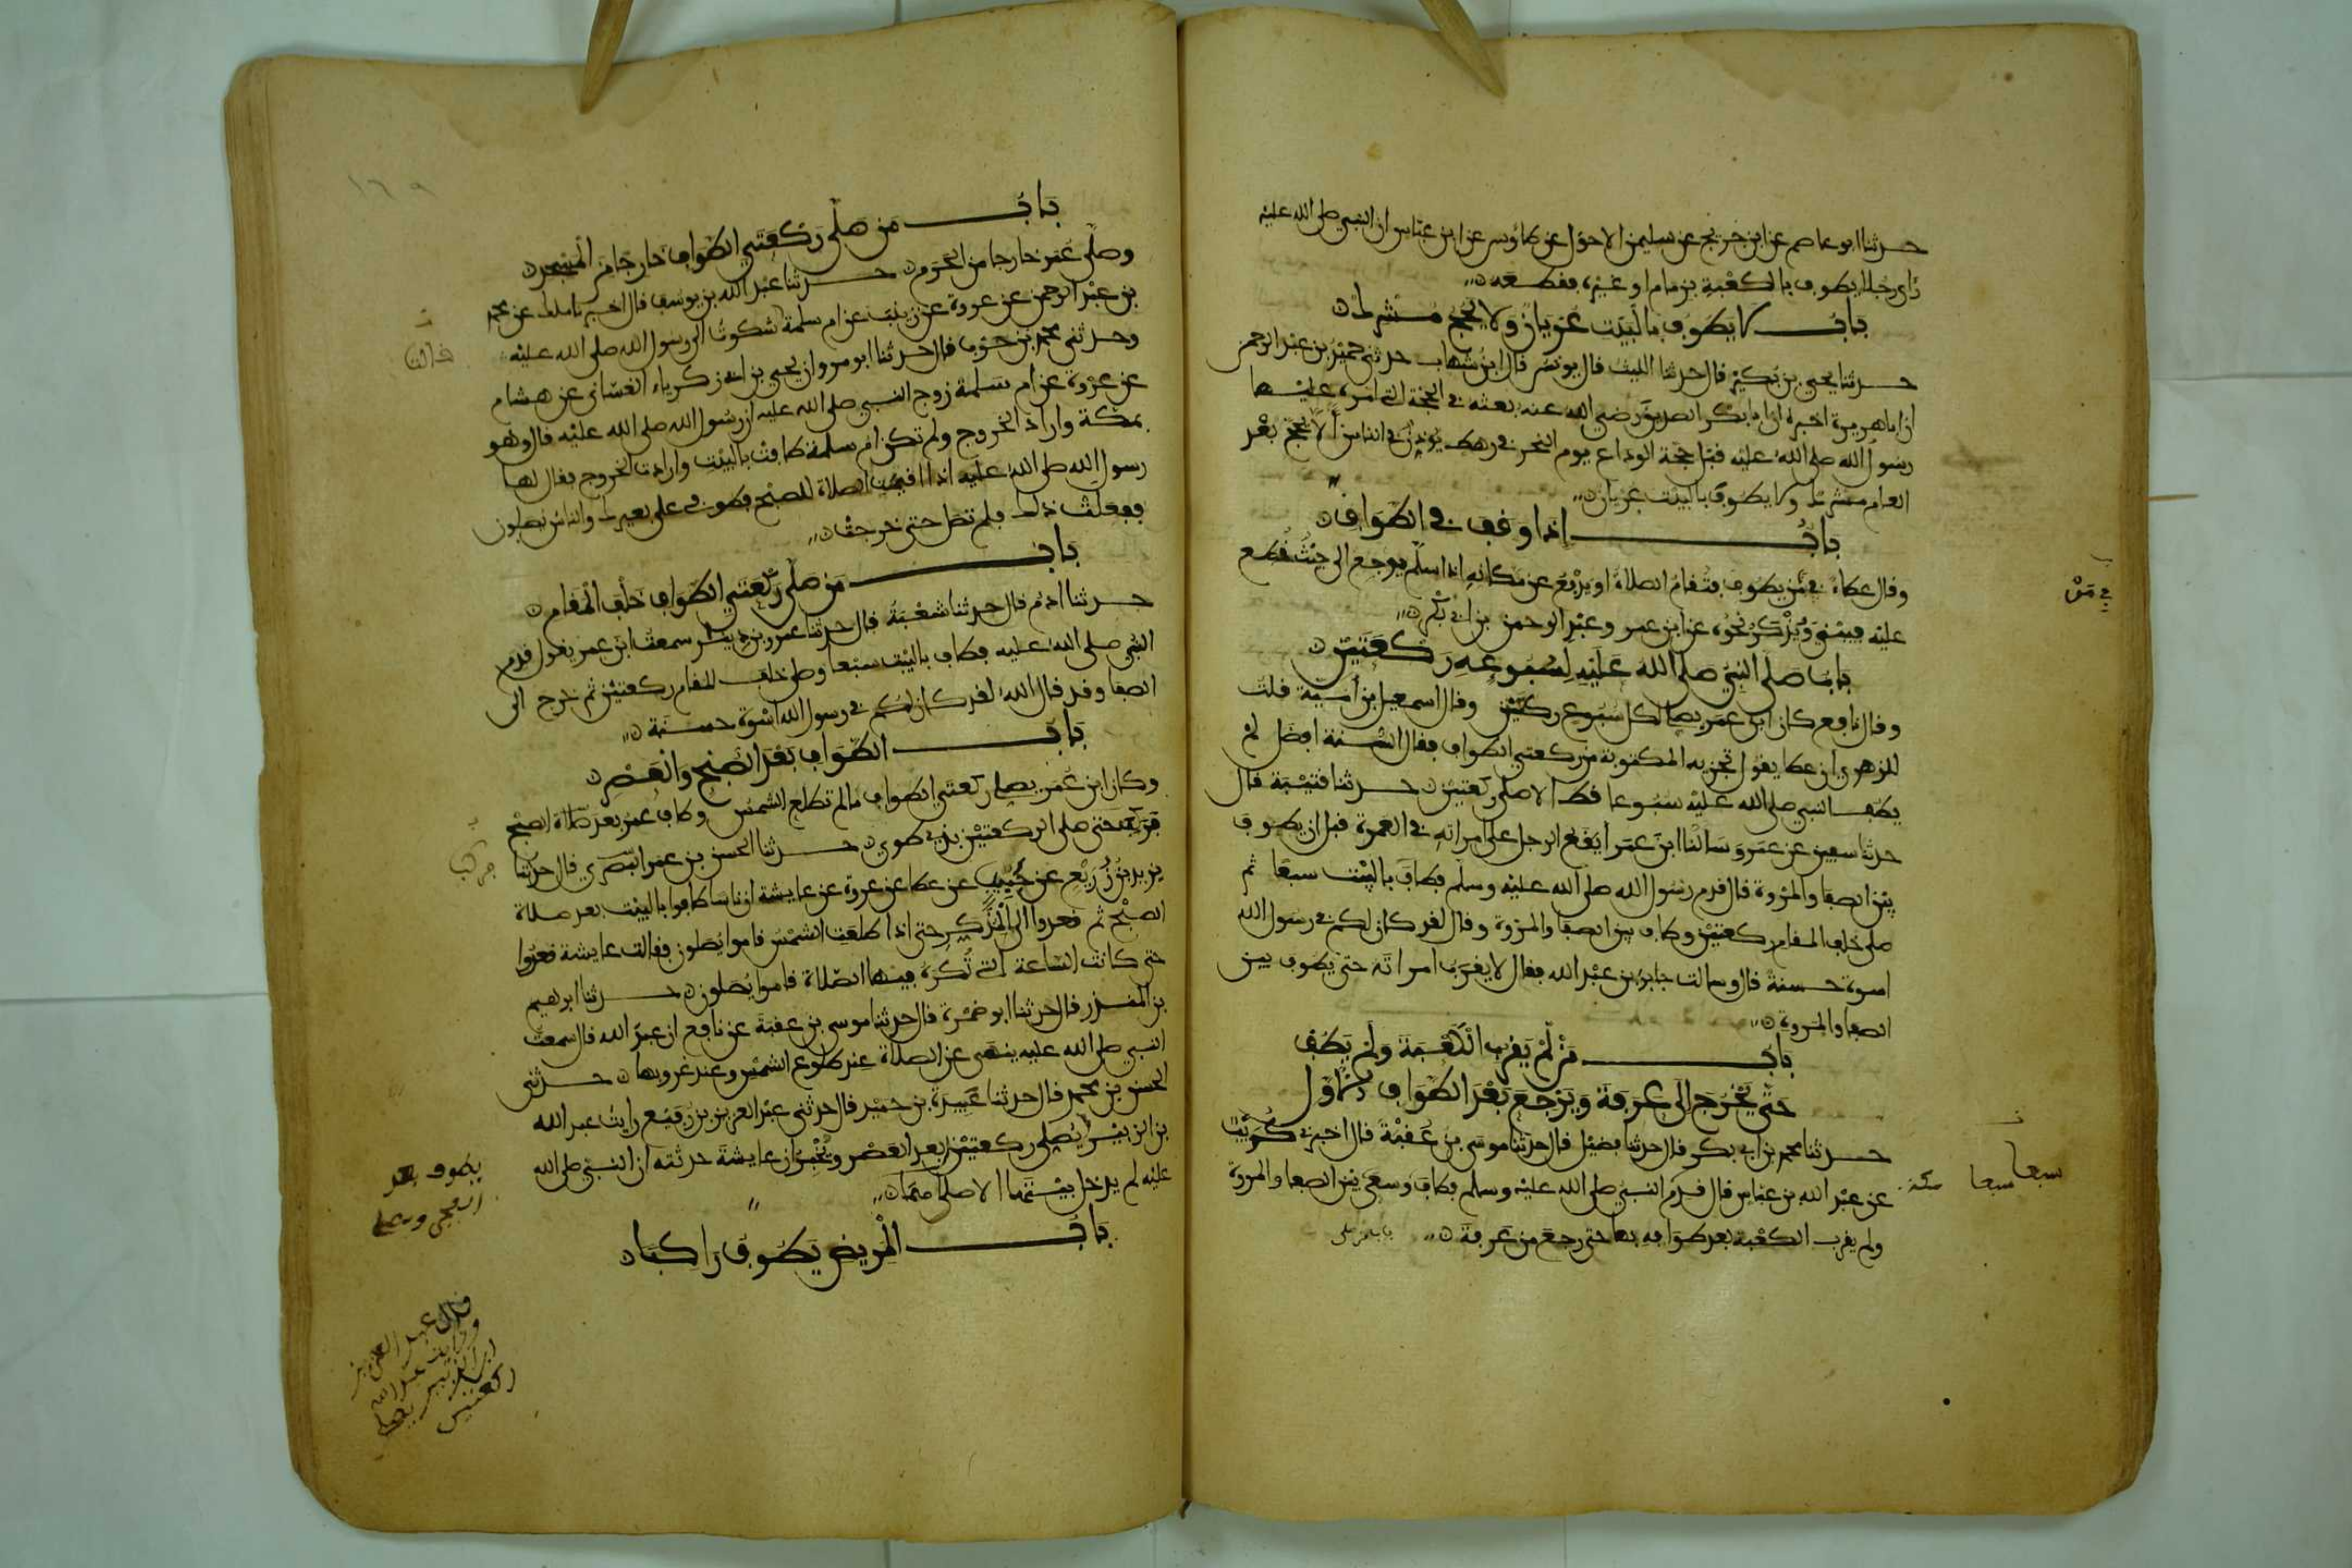 حدثنا ابو عاصم عن ابن جريج عن سليمن الاحول عن طاوس عن ابن عباس ان النبي صلى الله عليه
راى رجلا يطوف بالكعبة بزمام او غيره فقطعه
باب لا يطوف بالبيت عريان ولا يحج مشرك
حدثنا يحيى بن بكير قال حدثنا الليث قال يونس قال ابن شهاب حدثني حميد بن عبد الرحمن
ان ابا هريرة اخبره ان ابا بكر الصديق رضي الله عنه بعثه في الحجة التي امره عليها
رسول الله صلى الله عليه قبل حجة الوداع يوم النحر في رهط يوذن في الناس الا لا يحج بعد
العام مشرك ولا يطوف بالبيت عريان
باب اذا وقف في الطواف
وقال عطاء في من يطوف فتقام الصلاة او يدفع عن مكانه اذا سلم يرجع الى حيث قطع
في مَن
عليه فيبني ويذكر نحوه عن ابن عمر وعبد الرحمن بن ابي بكر
باب صلى النبي صلى الله عليه لسبوعه ركعتين
وقال نافع كان ابن عمر يصلي لكل سبوع ركعتين وقال اسمعيل بن امية قلت
للزهري ان عطا يقول تجزيه المكتوبة من ركعتي الطواف فقال السنة افضل لم
يطف النبي صلى الله عليه سبوعا قط الا صلى ركعتين حدثنا قتيبة قال
حدثنا سفين عن عمرو سالنا ابن عمر ايقع الرجل على امراته في العمرة قبل ان يطوف
بين الصفا والمروة قال قدم رسول الله صلى الله عليه وسلم فطاف بالبيت سبعا ثم
صلى خلف المقام ركعتين وطاف بين الصفا والمروة وقال لقد كان لكم في رسول الله
اسوة حسنة قال وسالت جابر بن عبد الله فقال لا يقرب امراته حتى يطوف بين
الصفا والمروة
باب من لم يقرب الكعبة ولم يطف
حتى يخرج الى عرفة ويرجع بعد الطواف الاول
حدثنا محمد بن ابي بكر قال حدثنا فضيل قال حدثنا موسى بن عقبة قال اخبرني كريب
عن عبد الله بن عباس قال قدم النبي صلى الله عليه وسلم فطاف وسعى بين الصفا والمروة
مكة سبعا سبعا
ولم يقرب الكعبة بعد طوافه بها حتى رجع من عرفة
باب من صلى
١٦٩
باب من صلى ركعتي الطواف خارجا من المسجد
وصلى عمر خارجا من الحرم حدثنا عبد الله بن يوسف قال اخبرنا ملك عن محمد
بن عبد الرحمن عن عروة عن زينب عن ام سلمة شكوت الى رسول الله صلى الله عليه
قالت
وحدثني محمد بن حرب قال حدثنا ابو مروان يحيى بن ابي زكرياء الغساني عن هشام
عن عروة عن ام سلمة زوج النبي صلى الله عليه ان رسول الله صلى الله عليه قال وهو
بمكة واراد الخروج ولم تكن ام سلمة طافت بالبيت وارادت الخروج فقال لها
رسول الله صلى الله عليه اذا اقيمت الصلاة للصبح فطوفي على بعيرك والناس يصلون
ففعلت ذلك فلم تصل حتى خرجت
باب من صلى ركعتي الطواف خلف المقام
حدثنا ادم قال حدثنا شعبة قال حدثنا عمرو بن دينار سمعت ابن عمر يقول قدم
النبي صلى الله عليه فطاف بالبيت سبعا وصلى خلف المقام ركعتين ثم خرج الى
الصفا وقد قال الله لقد كان لكم في رسول الله اسوة حسنة
باب الطواف بعد الصبح والعصر
وكان ابن عمر يصلي ركعتي الطواف ما لم تطلع الشمس وطاف عمر بعد صلاة الصبح
فركب حتى صلى الركعتين بذي طوى حدثنا الحسن بن عمر البصري قال حدثنا
فركب
يزيد بن زريع عن حبيب عن عطا عن عروة عن عايشة ان ناسا طافوا بالبيت بعد صلاة
الصبح ثم قعدوا الى المذكر حتى اذا طلعت الشمس قاموا يصلون فقالت عايشة قعدوا
حتى كانت الساعة التي تكره فيها الصلاة قاموا يصلون حدثنا ابرهيم
بن المنذر قال حدثنا ابو ضمرة قال حدثنا موسى بن عقبة عن نافع ان عبد الله قال سمعت
النبي صلى الله عليه ينهى عن الصلاة عند طلوع الشمس وعند غروبها حدثني
الحسن بن محمد قال حدثنا عبيدة بن حميد قال حدثني عبد العزيز بن رفيع رايت عبد الله
بن الزبير يصلي ركعتين بعد العصر ويخبر ان عايشة حدثته ان النبي صلى الله
عليه لم يدخل بيتها الا صلاهما
يطوف بعد
الفجر ويصلي
باب المريض يطوف راكبا
قال عبد العزيز
ورايت عبد الله
ابن الزبير يصلي
ركعتين